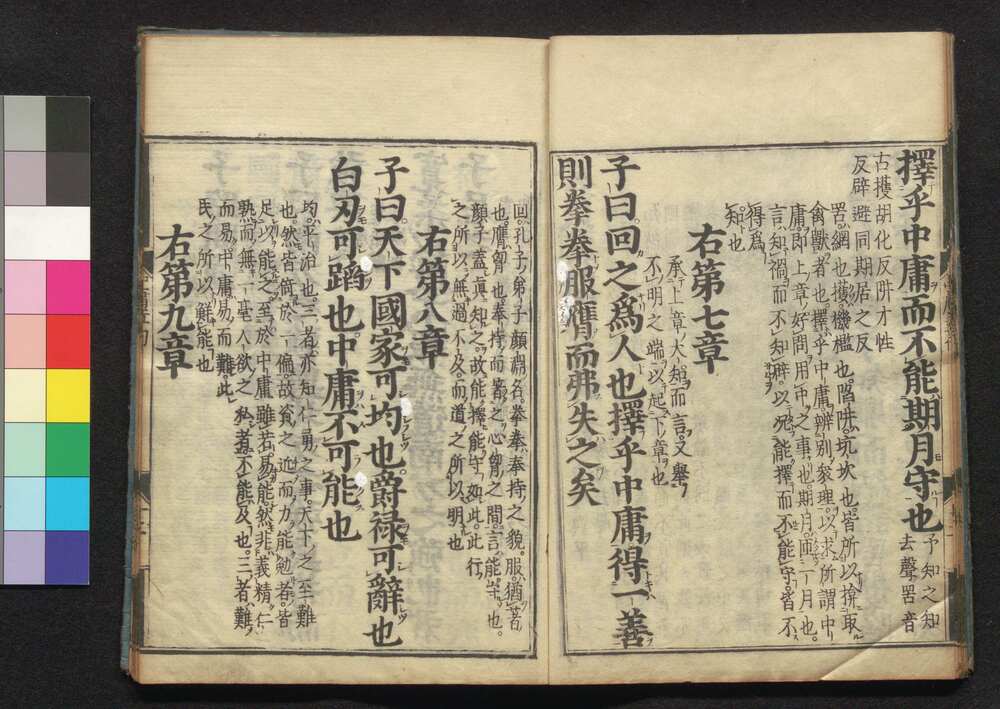 擇乎中庸而不能期月守也
予知之知
去聲罟音
古擭胡化反阱才性
反辟避同期居之反
罟網也擭機檻也陷阱坑坎也皆所以揜取
禽獸者也擇乎中庸辨別衆理以求所謂中
庸即上章好問用中之事也期月匝一月也
言知禍而不知辟以況能擇而不能守皆不
得爲
知也
右第七章
承上章大知而言又舉
不明之端以起下章也
子曰回之爲人也擇乎中庸得一善
則拳拳服膺而弗失之矣
回孔子弟子顏淵名拳拳奉持之貌服猶著
也膺胷也奉持而著之心胷之間言能守也
顏子蓋眞知之故能擇能守如此此行
之所以無過不及而道之所以明也
右第八章
子曰天下國家可均也爵祿可辭也
白刃可蹈也中庸不可能也
均平治也三者亦知仁勇之事天下之至難
也然皆倚於一偏故資之近而力能勉者皆
足以能之至於中庸雖若易能然非義精仁
熟而無一毫人欲之私者不能及也三者難
而易中庸易而難此
民之所以鮮能也
右第九章